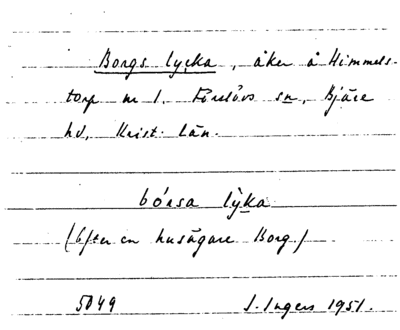 Borgs lycka, åker å Himmels-
torp nr 1. Förslövs sn, Bjäre
hd, Krist. län.
bórsa lỳka
(Efter en husägare Borg)
5049 I. Ingers 1951.